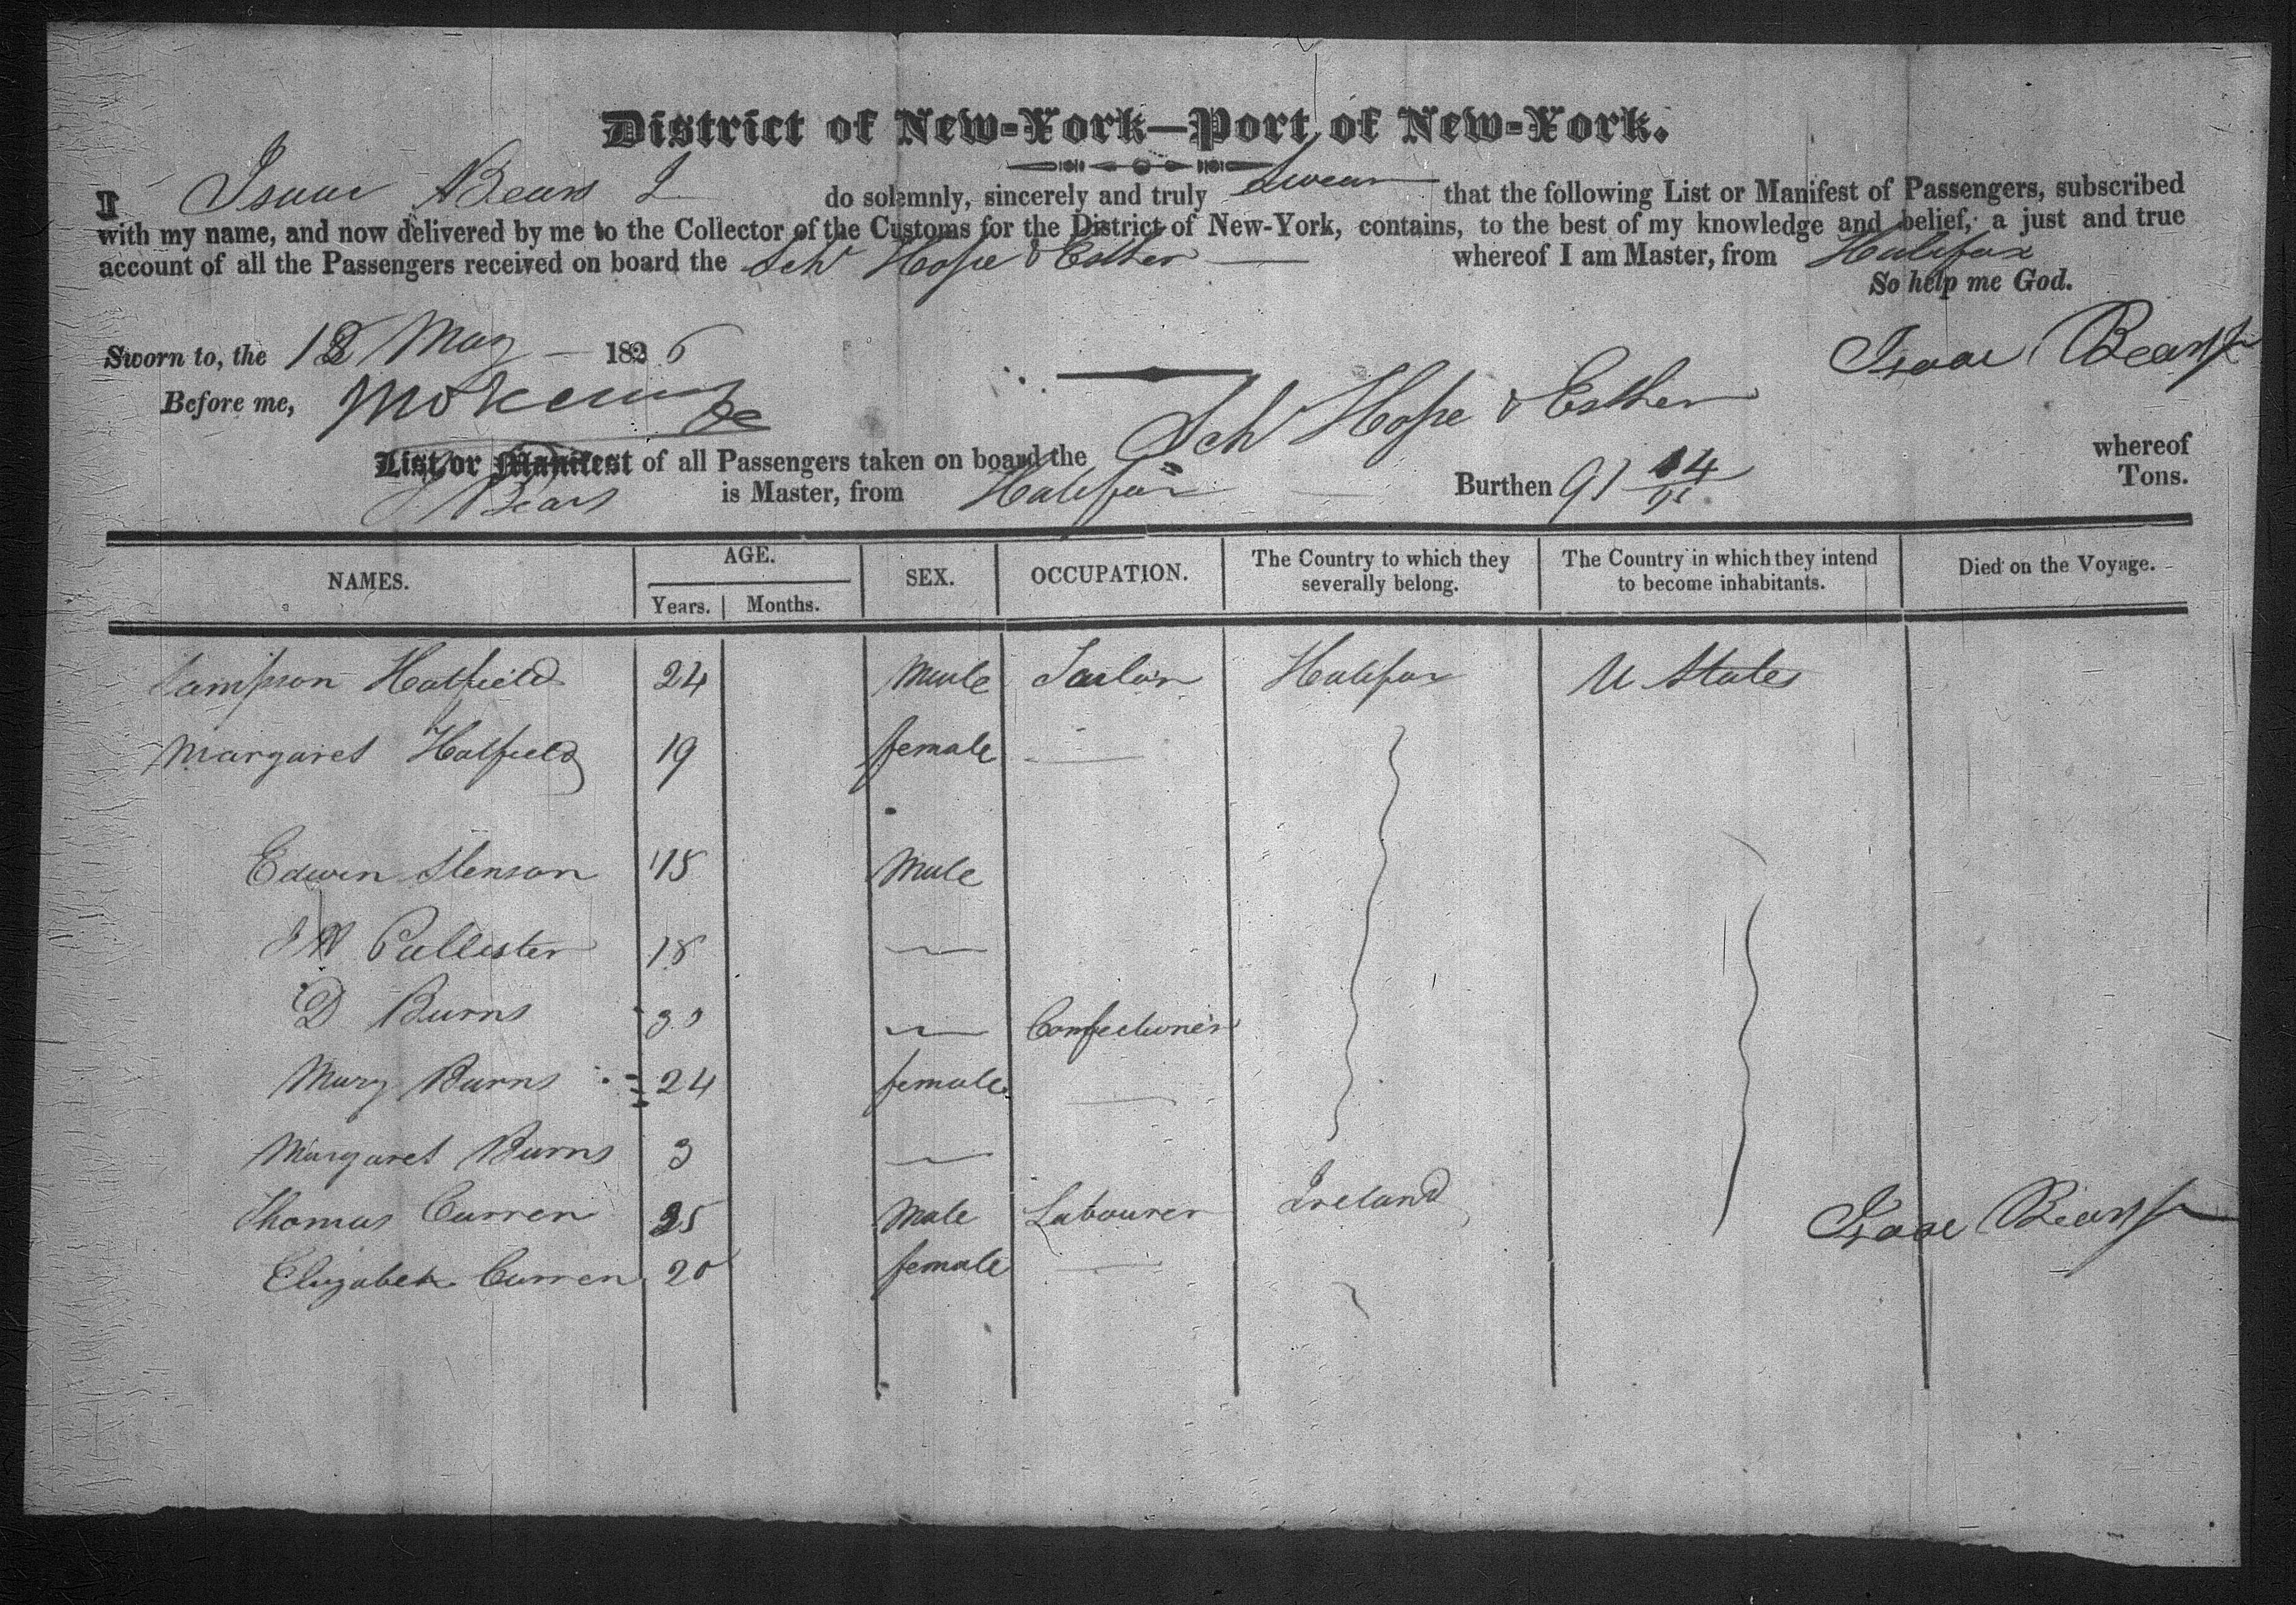 District of New-York—Port of New-York.
I Isaac Bears J do solemnly, sincerely and truly Swear that the following List or Manifest of Passengers, subscribed
with my name, and now delivered by me to the Collector of the Customs for the District of New-York, contains, to the best of my knowledge and belief, a just and true
account of all the Passengers received on board the Schr Hope & Esther whereof I am Master, from Halifax
So help me God.
Sworn to, the 18 May 1826 Isaac Bears Jr
Before me,
List or Manifest of all Passengers taken on board the Schr Hope & Esther whereof
J. Bears is Master, from Halifax Burthen 91 14/95 Tons.
NAMES. AGE. SEX. OCCUPATION. The Country to which they severally belong. The Country in which they intend to become inhabitants. Died on the Voyage.
Years. Months.
Sampson Hatfield 24 Male Sailor Halifax U States
Margaret Hatfield 19 female
Edwin Stenson 18 Male
J W Pallister 18
D Burns 30 Confectioner
Mary Burns 24 female
Margaret Burns 3
Thomas Curren 25 Male Labourer Ireland
Isaac Bears Jr
Elizabeth Curren 20 female